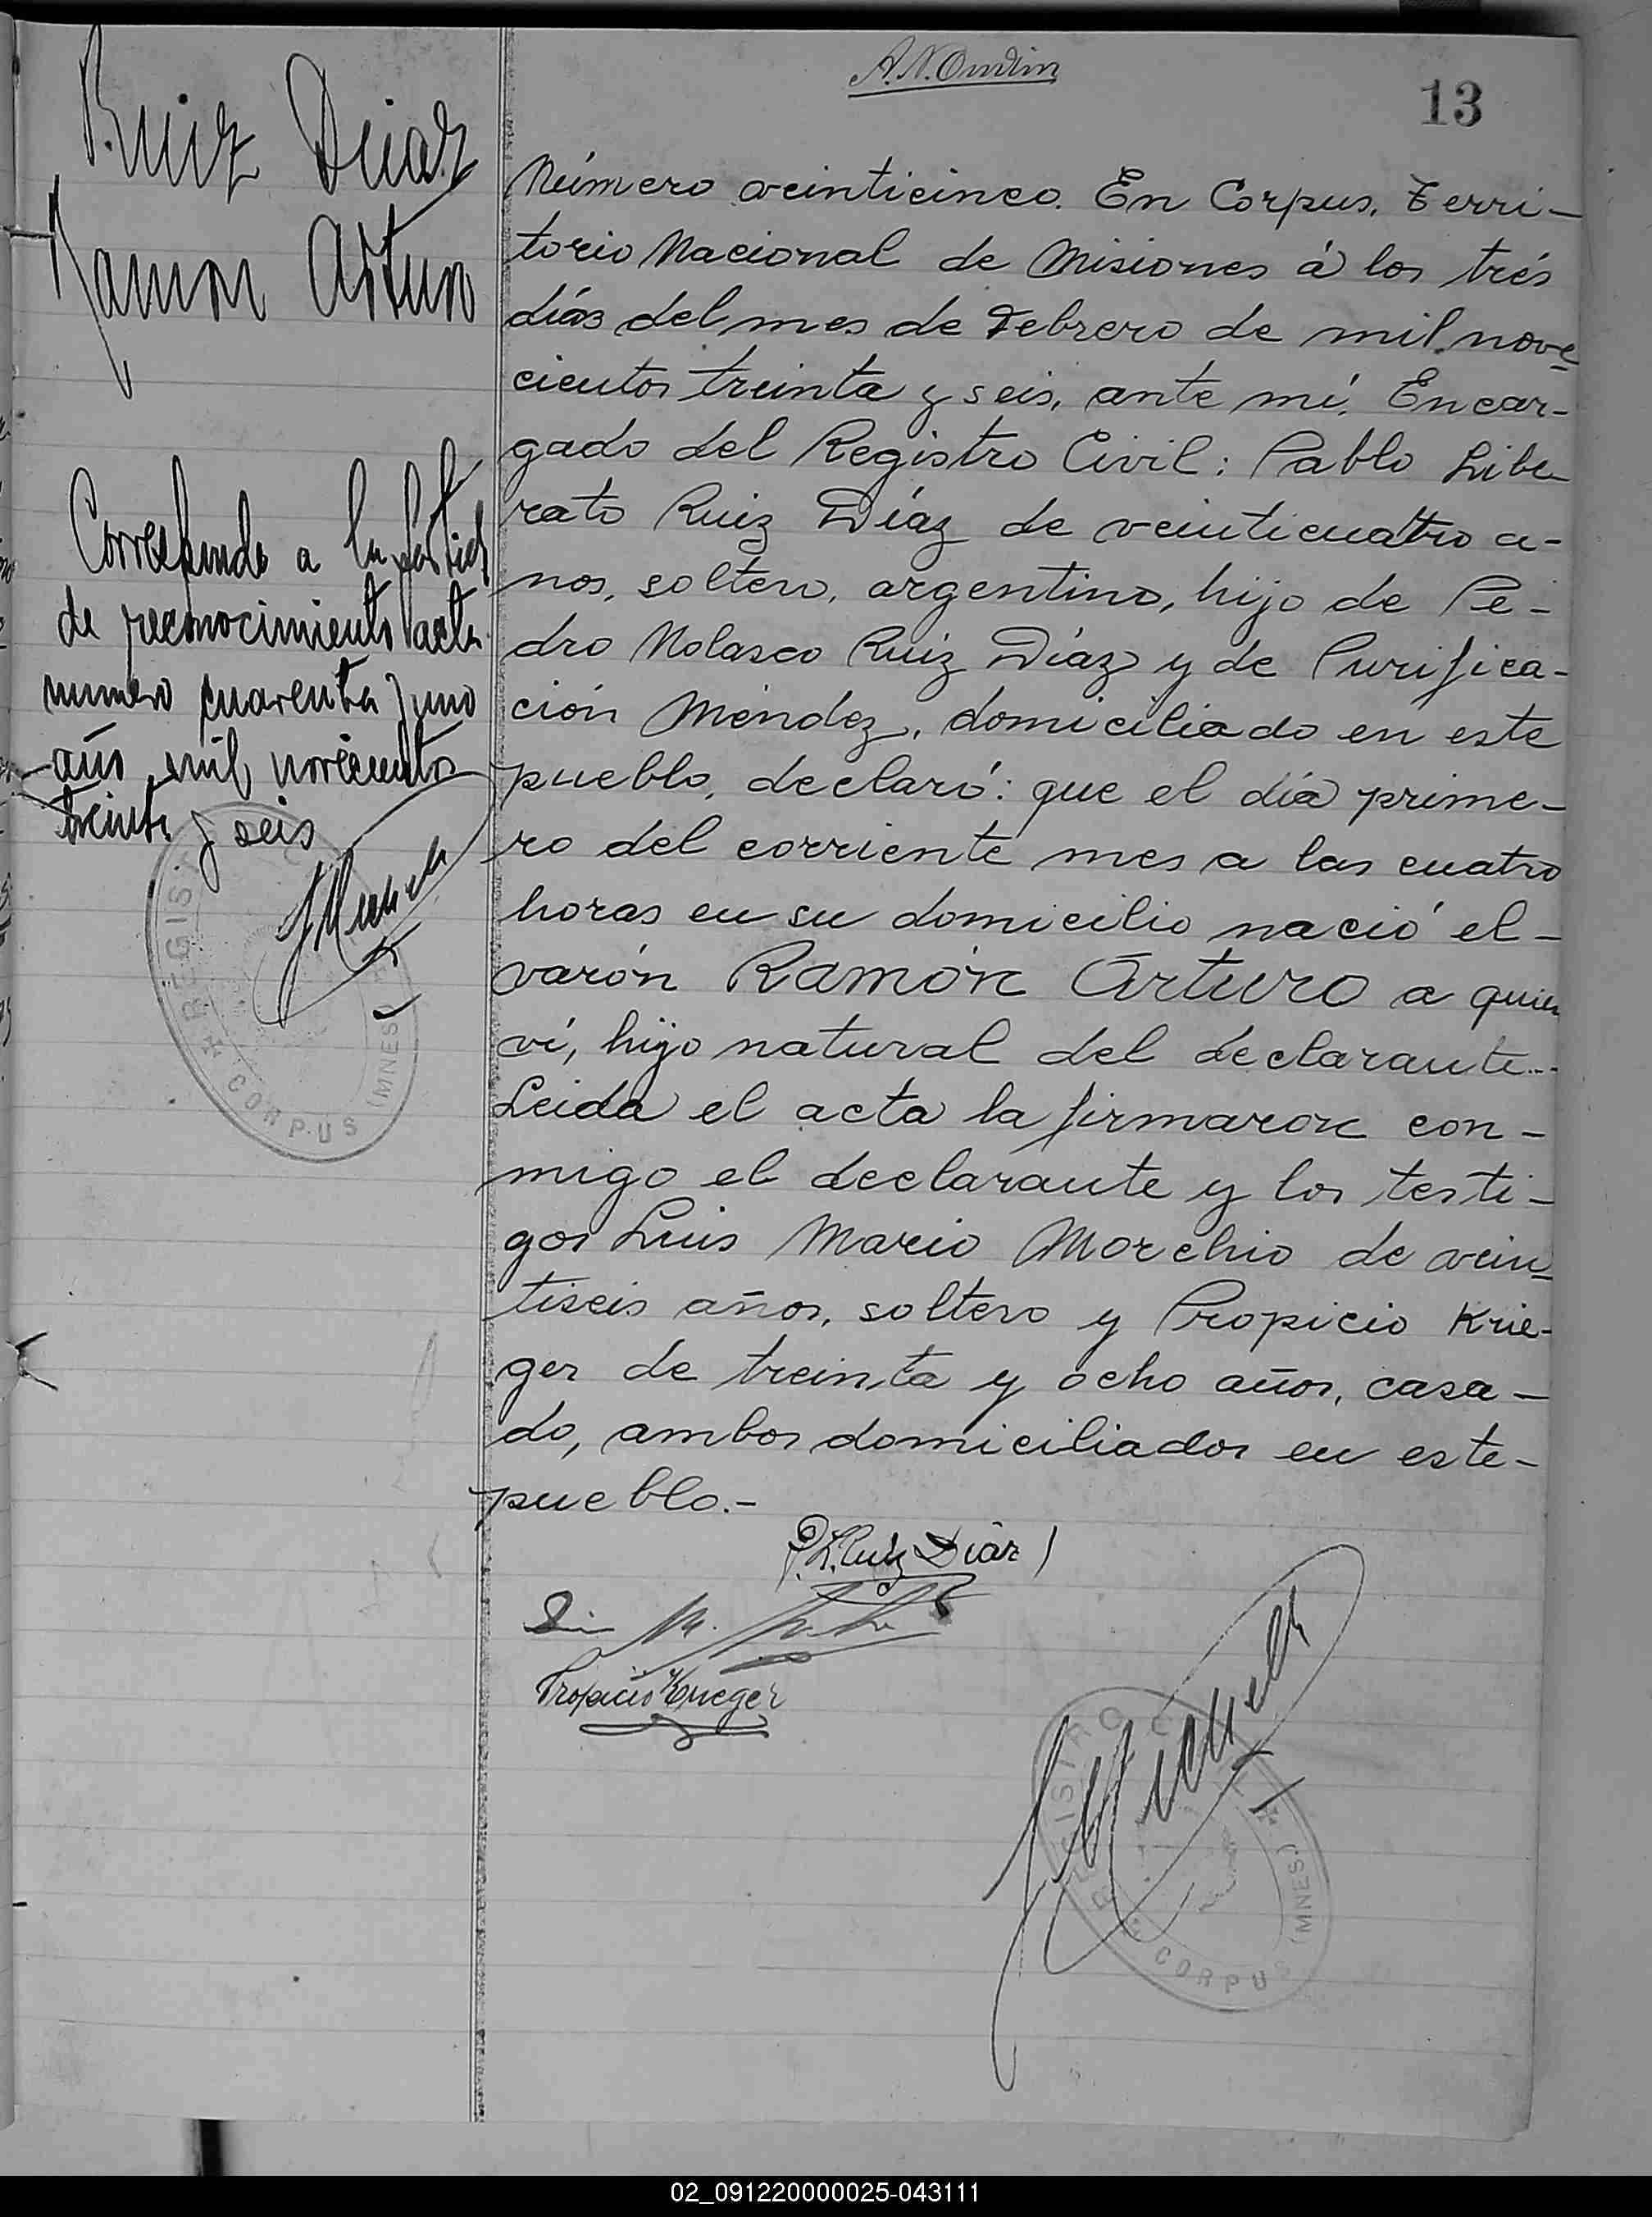 13
Ruiz Diaz
Ramon Arturo
Corresponde a la
de reconocimiento acta
numero cuarenta y uno
año mil novecientos
treinta y seis
REGIST
CORPUS (MNES)
Número veinticinco. En Corpus, Terri-
torio Nacional de Misiones á los trés
días del mes de Febrero de mil nove-
cientos treinta y seis, ante mí, Encar-
gado del Registro Civil: Pablo Libe-
rato Ruiz Díaz de veinticuatro a-
nos, soltero, argentino, hijo de Pe-
dro Nolasco Ruiz Díaz y de Purifica-
ción Méndez, domiciliado en este
pueblo, declaró: que el día prime-
ro del corriente mes a las cuatro
horas en su domicilio nació el-
varón Ramón Arturo a quien
ví, hijo natural del declarante..-
Leida el acta la firmaron con-
migo el declarante y los testi-
gos Luis Mario Morchio de vein-
tiseis años, soltero y Propicio Krie-
ger de treinta y ocho años, casa-
do, ambos domiciliados en este-
pueblo.-
P.L. Ruiz Diaz
Propicio Krieger
REGISTRO C
CORPUS (MNES)
02_091220000025-043111